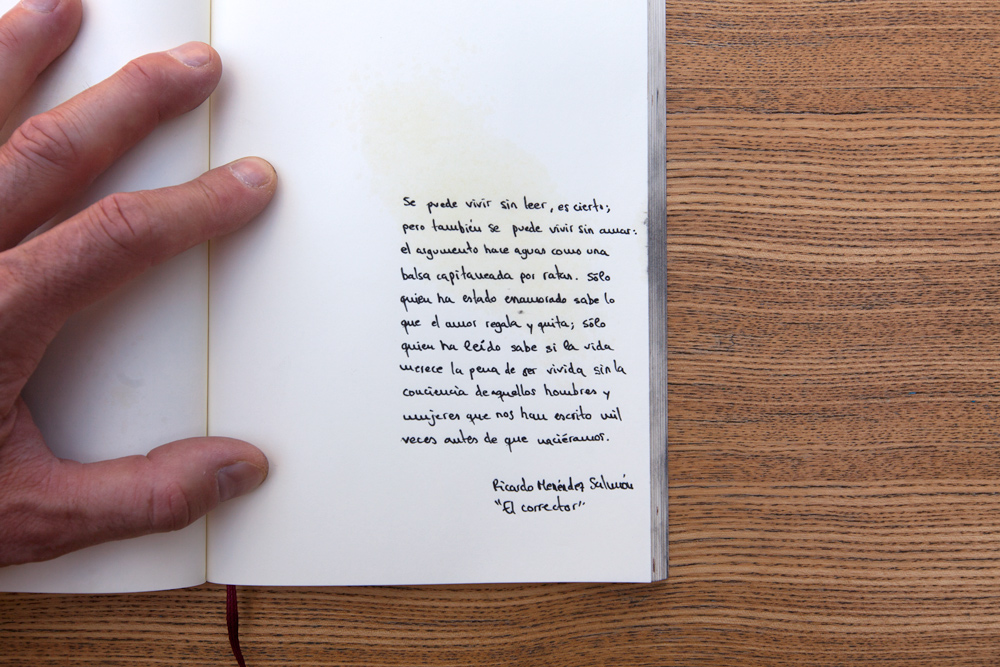 Se puede vivir sin leer, es cierto;
pero también se puede vivir sin amar:
el argumento hace aguas como una
balsa capitaneada por ratas. Sólo
quien ha estado enamorado sabe lo
que el amor regala y quita; sólo
quien ha leído sabe si la vida
merece la pena de ser vivida sin la
conciencia de aquellos hombres y
mujeres que nos han escrito mil
veces antes de que naciéramos.
Ricardo Menéndez Salmón
"El corrector"